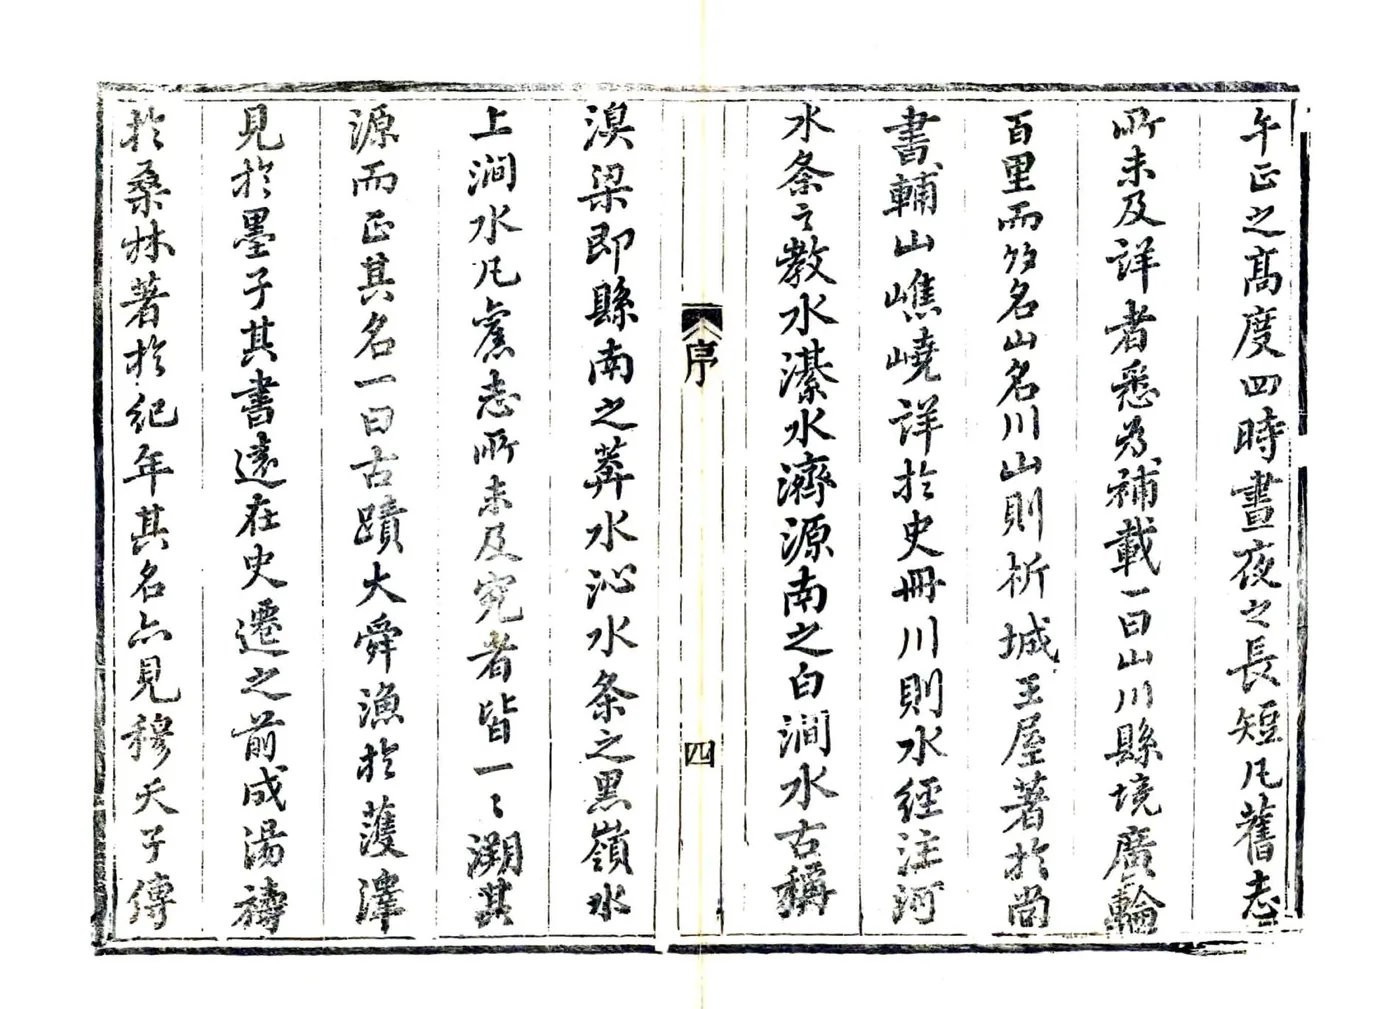 午正之髙度四時晝夜之長短凡舊志
所未及詳者悉爲補載一曰山川縣境廣輪
百里而多名山名川山則析城王屋著於尚
書輔山嶕嶢詳於史冊川則水經注河
水条之教水濝水濟源南之白澗水古稱
序
四
湨梁即縣南之䓑水沁水条之黑嶺水
上澗水凡舊志所未及究者皆一〻溯其
源而正其名一曰古蹟大舜漁於濩澤
見於墨子其書遠在史遷之前成湯禱
於桑林著於紀年其名亦見穆天子傳